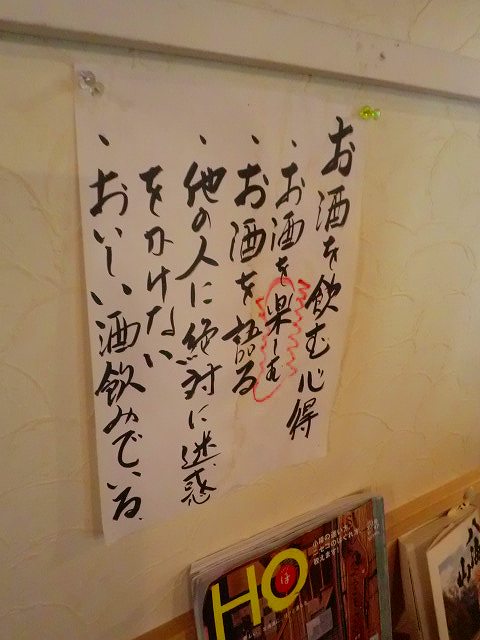 お酒を飲む心得
・お酒を楽しむ
・お酒を語る
・他の人に絶対に迷惑
をかけない
・おいしい酒飲みでいる。
HO
ほ